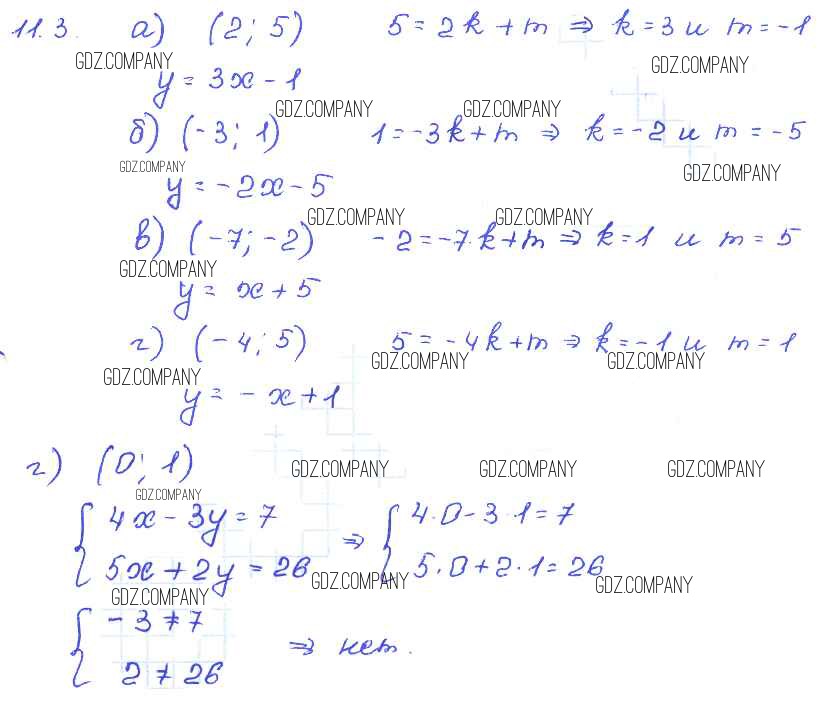 11.3. а) (2; 5) 5 = 2k + m ⇒ k = 3 и m = -1
GDZ.COMPANY GDZ.COMPANY
y = 3x - 1
GDZ.COMPANY GDZ.COMPANY
б) (-3; 1) 1 = -3k + m ⇒ k = -2 и m = -5
GDZ.COMPANY GDZ.COMPANY
y = -2x - 5
GDZ.COMPANY GDZ.COMPANY
в) (-7; -2) -2 = -7·k + m ⇒ k = 1 и m = 5
GDZ.COMPANY
y = x + 5
г) (-4; 5) 5 = -4k + m ⇒ k = -1 и m = 1
GDZ.COMPANY GDZ.COMPANY GDZ.COMPANY
y = -x + 1
г) (0; 1) GDZ.COMPANY GDZ.COMPANY GDZ.COMPANY
GDZ.COMPANY
{ 4x - 3y = 7 ⇒ { 4·0 - 3·1 = 7
5x + 2y = 26 5·0 + 2·1 = 26
GDZ.COMPANY GDZ.COMPANY GDZ.COMPANY
{ -3 ≠ 7
2 ≠ 26 ⇒ нет.